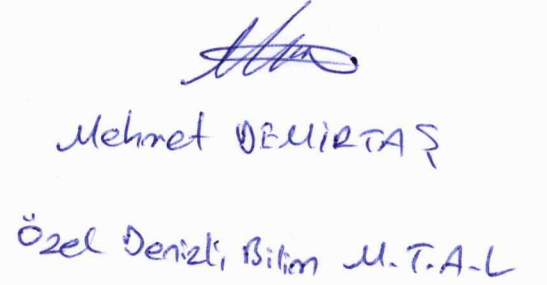 Mehmet DEMİRTAŞ
Özel Denizli Bilim M.T.A.L